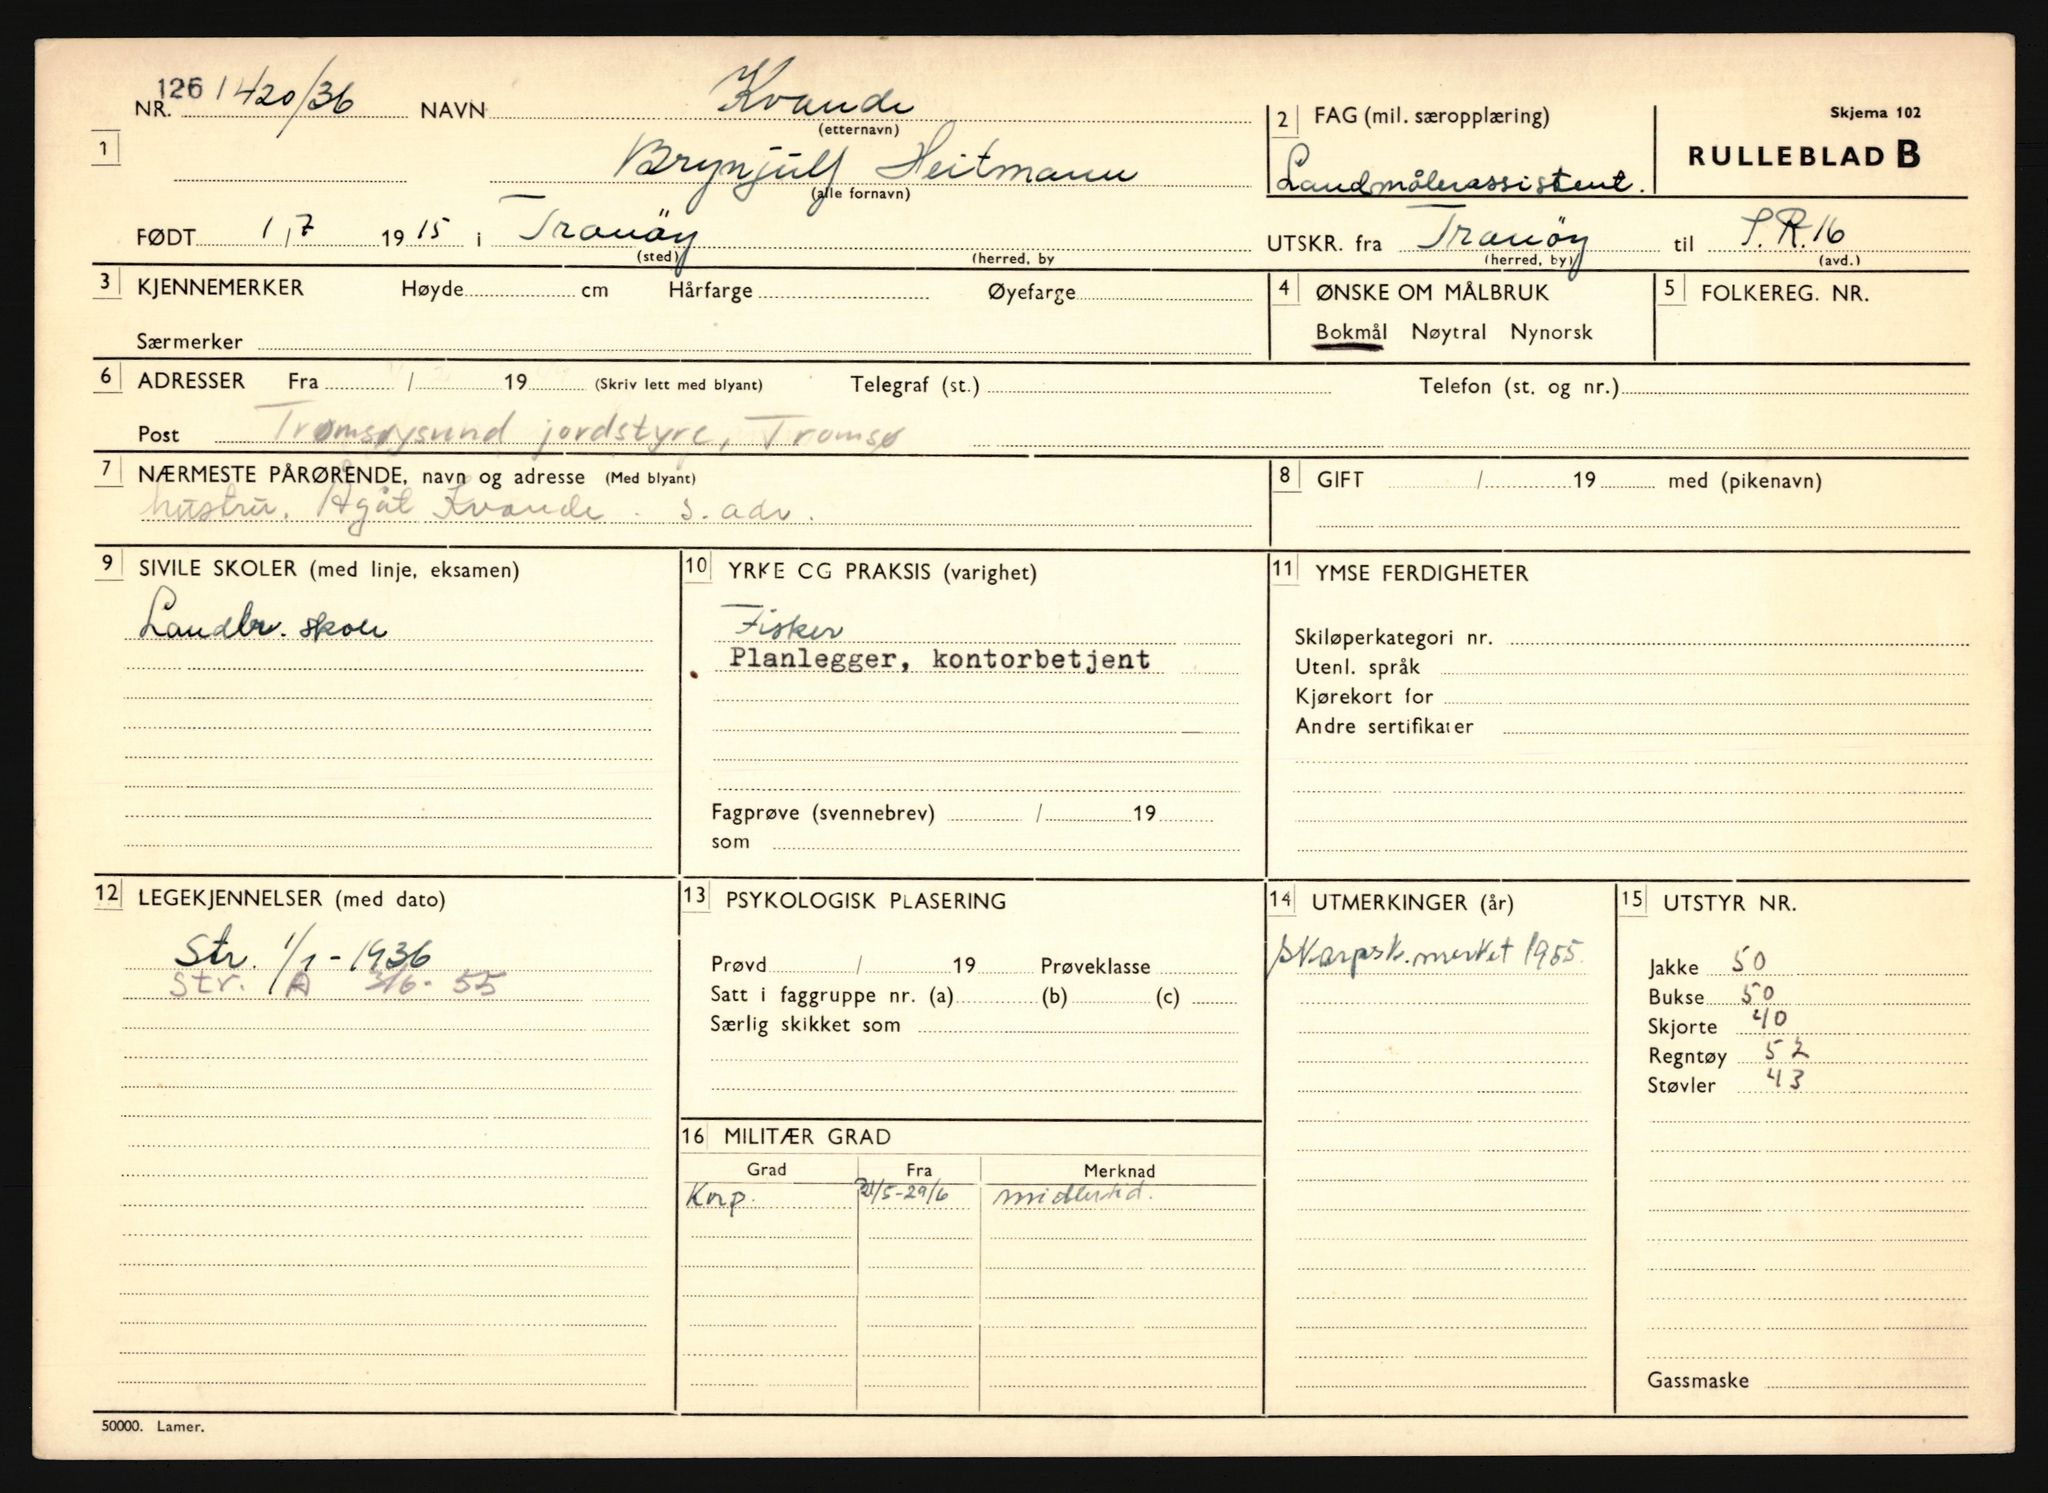 NR. 126 1420/36 NAVN Kvande
(etternavn)
1 Brynjulf Heitmann
(alle fornavn)
2 FAG (mil. særopplæring)
Landmålerassistent.
Skjema 102
RULLEBLAD B
FØDT 1/7 1915 i Tranöy
(sted) (herred, by
UTSKR. fra Tranöy til I.R.16
(herred, by) (avd.)
3 KJENNEMERKER Høyde cm Hårfarge Øyefarge
Særmerker
4 ØNSKE OM MÅLBRUK
Bokmål Nøytral Nynorsk
5 FOLKEREG. NR.
6 ADRESSER Fra / 19 (Skriv lett med blyant) Telegraf (st.) Telefon (st. og nr.)
Post Tromsøysund jordstyre, Tromsø
7 NÆRMESTE PÅRØRENDE, navn og adresse (Med blyant)
hustru. Agåt Kvande. s. adr.
8 GIFT / 19 med (pikenavn)
9 SIVILE SKOLER (med linje, eksamen)
Landbr. skole
10 YRKE OG PRAKSIS (varighet)
Fisker
Planlegger, kontorbetjent
Fagprøve (svennebrev) / 19
som
11 YMSE FERDIGHETER
Skiløperkategori nr.
Utenl. språk
Kjørekort for
Andre sertifikater
12 LEGEKJENNELSER (med dato)
Str. 1/1-1936
Str. A 3/6-55
13 PSYKOLOGISK PLASERING
Prøvd / 19 Prøveklasse
Satt i faggruppe nr. (a) (b) (c)
Særlig skikket som
14 UTMERKINGER (år)
Skarpsk.merket 1955.
15 UTSTYR NR.
Jakke 50
Bukse 50
Skjorte 40
Regntøy 52
Støvler 43
Gassmaske
16 MILITÆR GRAD
Grad Fra Merknad
Korp. 21/5-29/6 midlertid.
50000. Lamer.